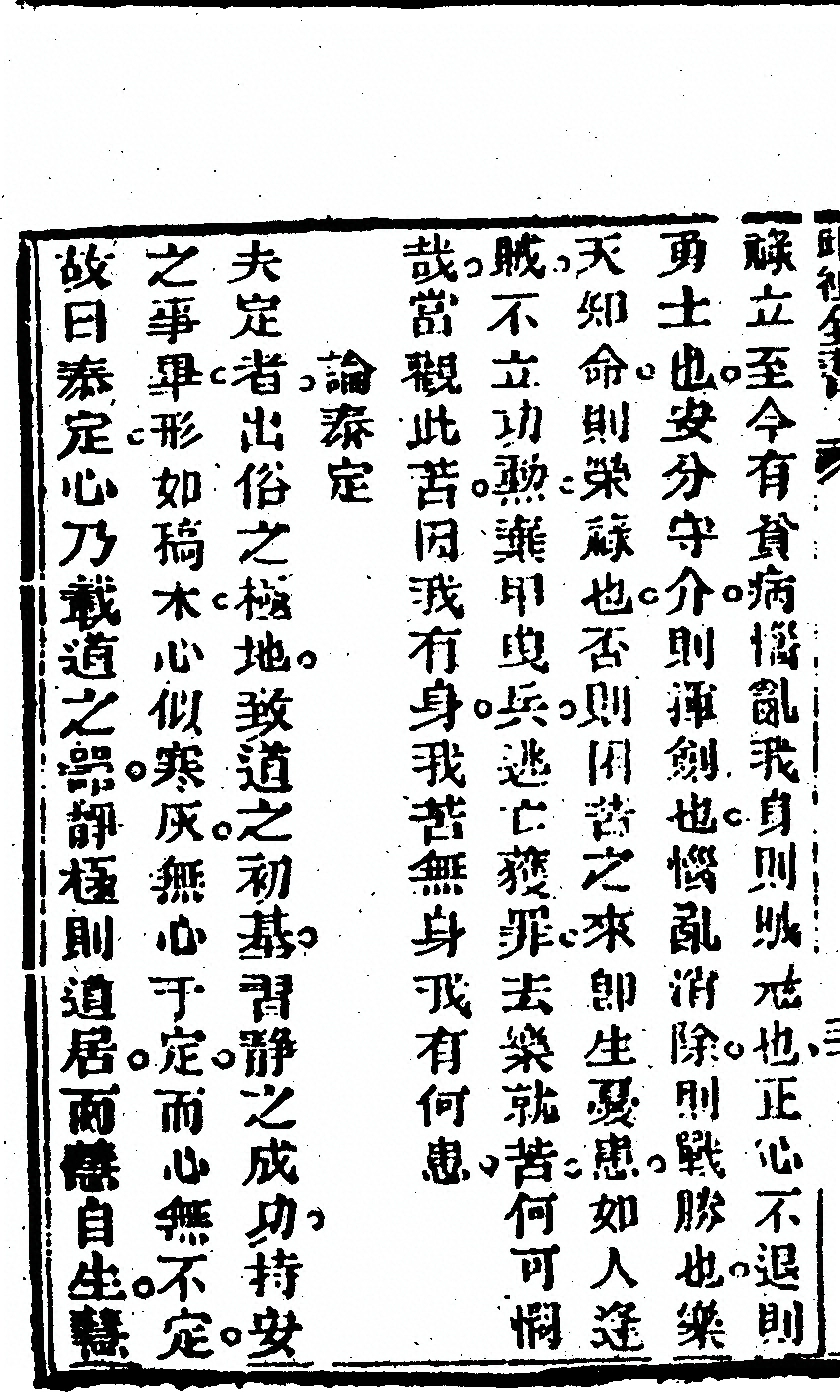 祿立至今有貧病惱亂我身則賊寇也正心不退則
勇士也安分守介則揮劍也惱亂消除則戰勝也樂
天知命則榮祿也否則困苦之來卽生憂患如人逢
賊不立功勲棄甲曳兵逃亡獲罪去樂就苦何可憫
哉當觀此苦因我有身我苦無身我有何患
論泰定
夫定者出俗之極地致道之初基習靜之成功持安
之事畢形如稿木心似寒灰無心于定而心無不定
故曰泰定心乃載道之器靜極則道居而慧自生慧